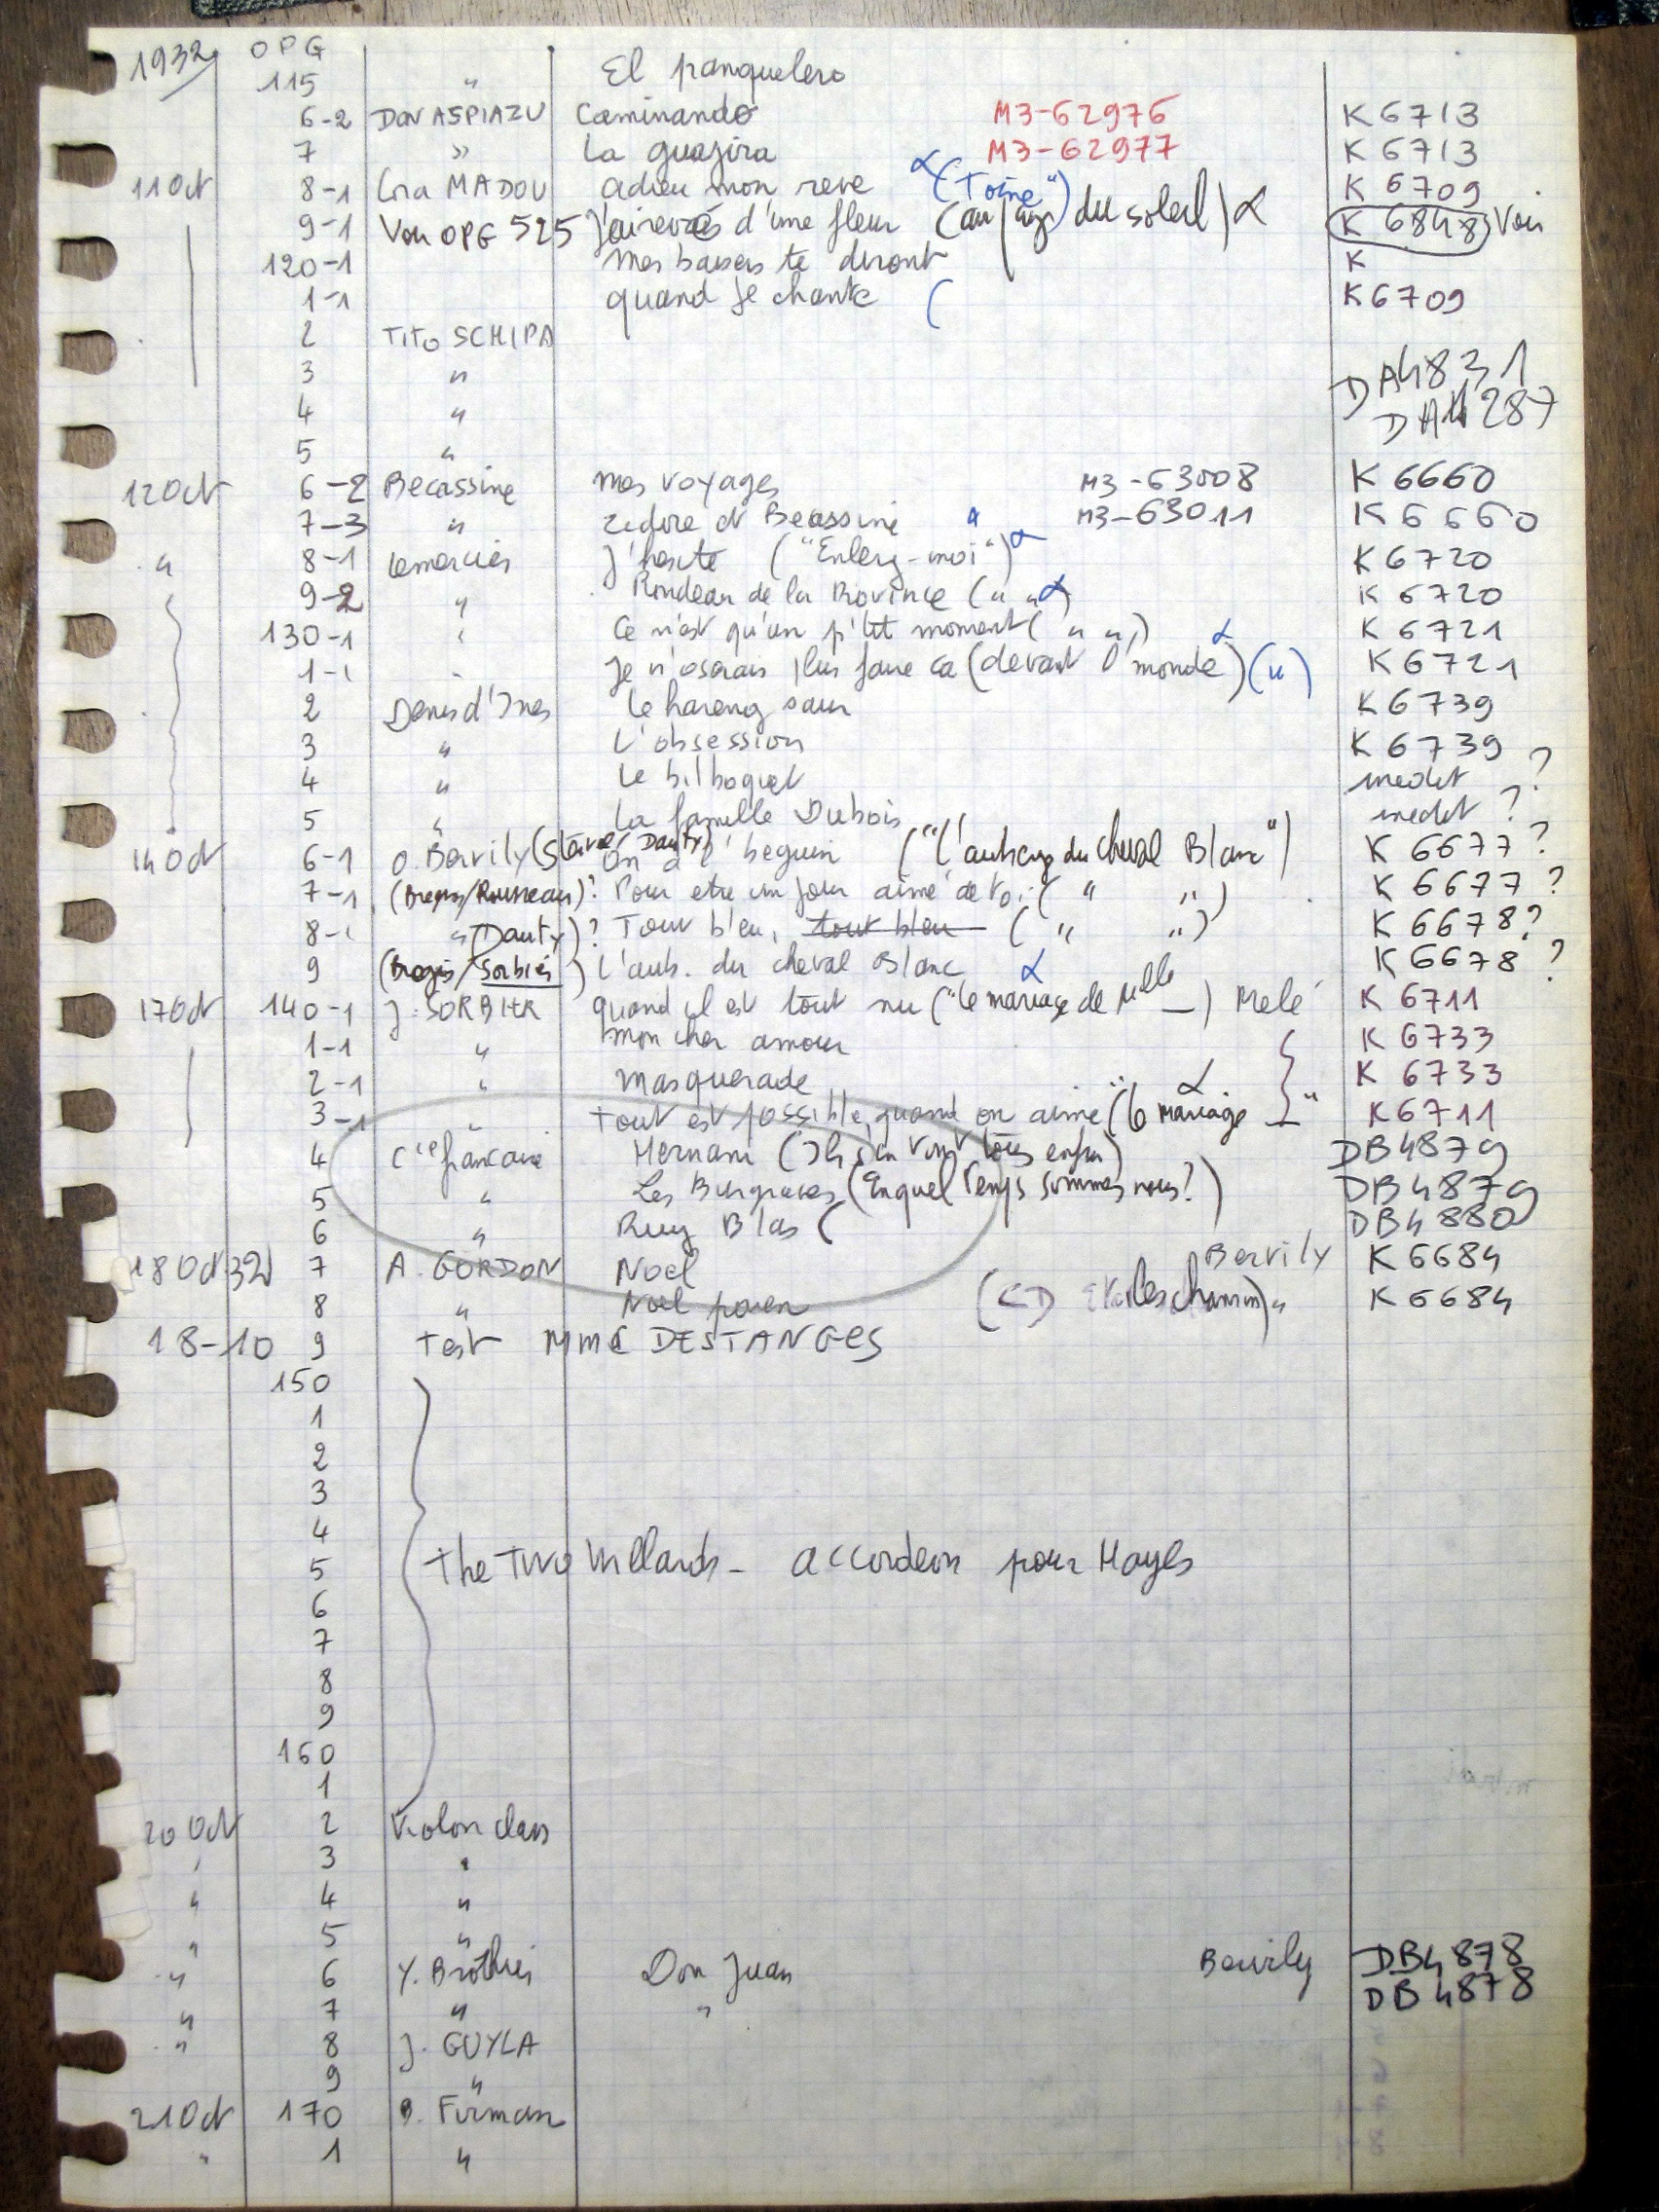 1932 OPG
115 " El panquelero
6-2 Don ASPIAZU Caminando M3-62976 K 6713
7 » La guajira M3-62977 K 6713
11 Oct 8-1 Cora MADOU adieu mon reve α ("Toine") K 6709
9-1 Voir OPG 525 J'ai revé d'une fleur (au pays du soleil) α K 6848 Voir
120-1 Mes baisers te diront K
1-1 quand je chante ( K 6709
2 TITO SCHIPA
3 " DA4831
4 " DA 287
5 "
12 Oct 6-2 Becassine Mes voyages M3-63008 K 6660
7-3 " Zidore et Becassine " M3-63011 K 6660
" 8-1 Lemercier J'hesite ("Enlevez-moi") α K 6720
9-2 " Rondeau de la Province (" " α) K 6720
130-1 " Ce n'est qu'un p'tit moment (" ",) K 6721
1-1 " Je n'oserais plus faire ca (devant l'monde) α (") K 6721
2 Denis d'Ines Le hareng saur K 6739
3 " L'obsession K 6739
4 " Le bilboquet inedit ?
5 " La famille Dubois inedit ?
14 Oct 6-1 O. Bervily ( / Dauty) On a l' beguin ("L'auberge du cheval Blanc") K 6677 ?
7-1 (Bregis/Rousseau)? Pour etre un jour aimé de toi (" ") K 6677 ?
8-1 " (Dauty)? Tout bleu, tout bleu (" ") K 6678 ?
9 (Bregis/Sorbier) L'aub. du cheval Blanc α K 6678 ?
17 Oct 140-1 J. SORBIER quand il est tout nu ("Le mariage de Melle —) Melé K 6711
1-1 " Mon cher amour K 6733
2-1 " Masquerade α K 6733
3-1 " Tout est possible quand on aime ("le mariage — " K6711
4 Cie francaise Hernani (Ils s'en vont tous enfin) DB4879
5 " Les Burgraves (En quel temps sommes nous?) DB4879
6 " Ruy Blas ( DB4880
18 Oct 32 7 A. GORDON Noel Bervily K 6684
8 " Noel paien (CD Etoiles chanson) " K 6684
18-10 9 Test MMe DESTANGES
150
1
2
3
4
5 The Two Willards - accordeon pour Hayes
6
7
8
9
160
1
20 Oct 2 Violon class
' 3 "
" 4 "
" 5 "
" 6 Y. Brothier Don Juan Bervily DB4878
" 7 " " DB4878
" 8 J. GUYLA
9 "
21 Oct 170 B. Firman
" 1 "